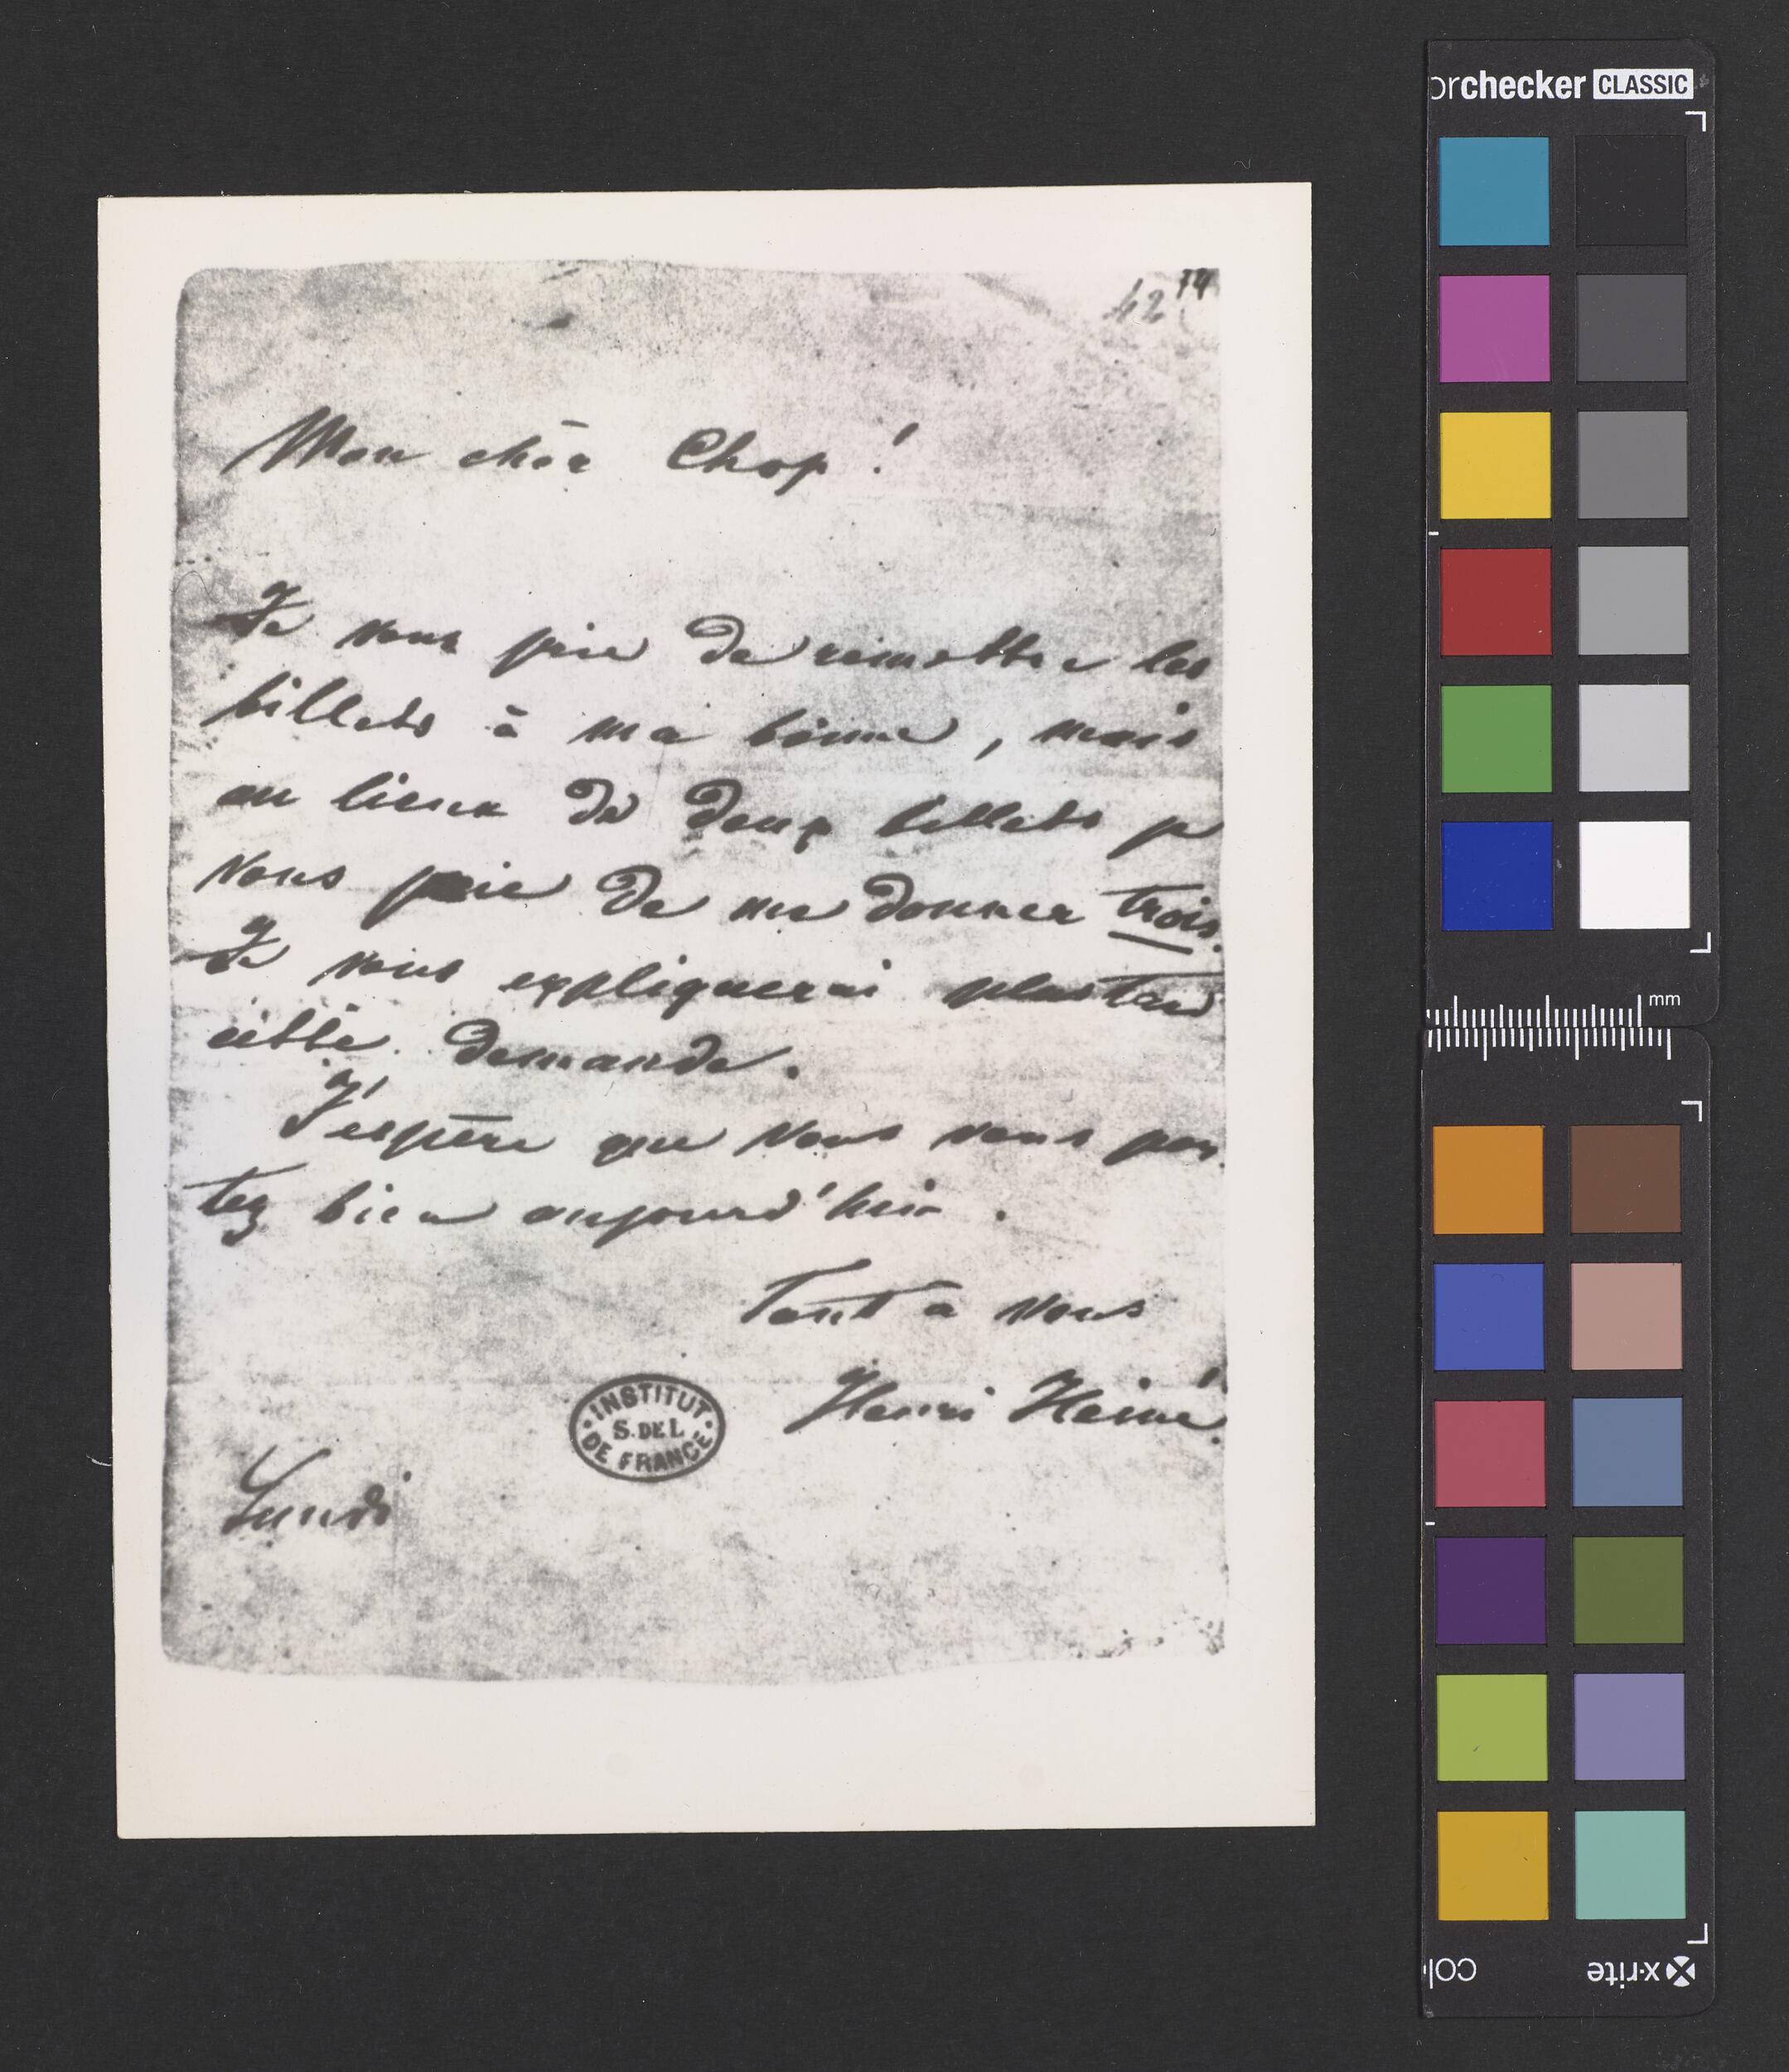 42 74
Mon cher Chop !
Je vous prie de remettre les
billets à ma bonne, mais
au lieux de deux billets je
vous prie de me donner trois.
Je vous expliquerai plus tard
cette demande.
J'espère que vous vous por
tez bien aujourd'hui.
Tout à vous
Henri Heiné.
INSTITUT
S. DE L.
DE FRANCE
Lundi
orchecker CLASSIC
mm
colo
x-rite